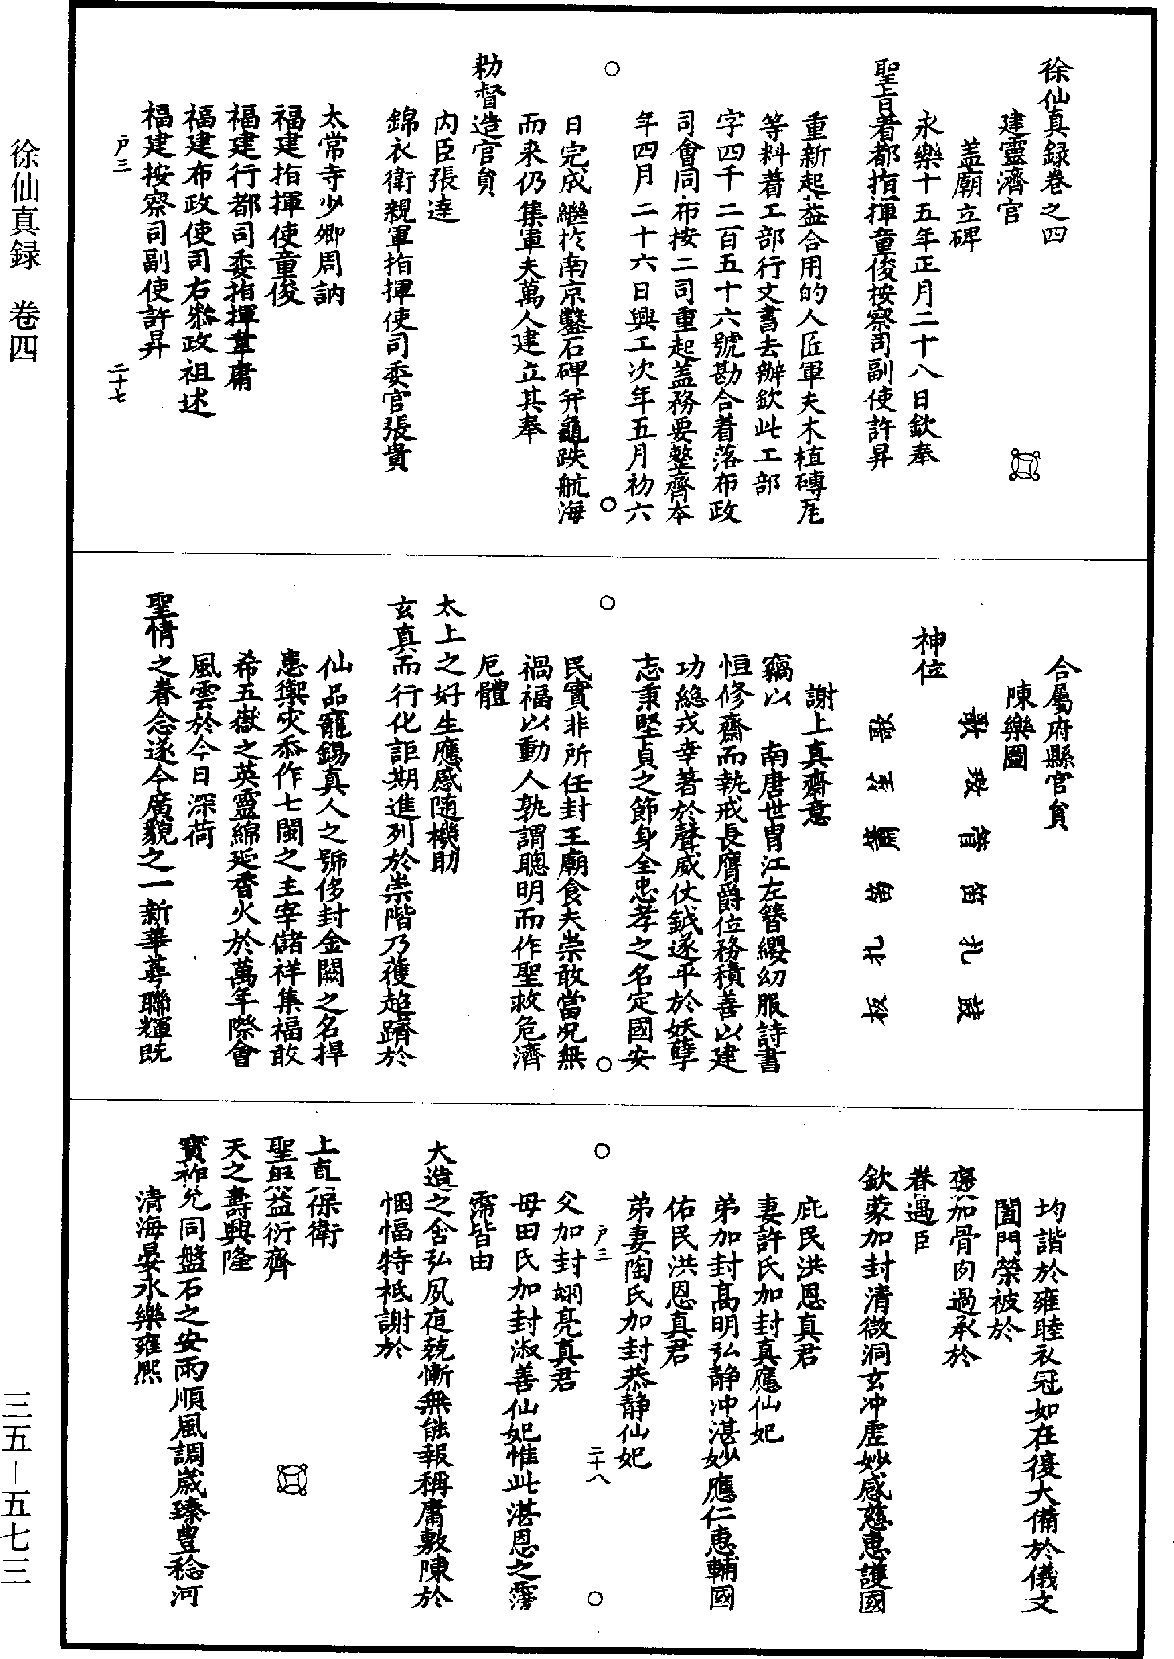 徐仙真録卷之四
建靈濟宫
蓋廟立碑
永樂十五年正月二十八日欽奉
聖旨着都指揮童俊按察司副使許昇
重新起蓋合用的人匠軍夫木植磚瓦
等料着工部行文書去辦欽此工部
字四千二百五十六號勘合着落布政
司會同布按二司重起蓋務要整齊本
年四月二十六日興工次年五月初六
日完成繼於南京鑿石碑并龜趺航海
而来仍集軍夫萬人建立其奉
勑督造官員
内臣張達
錦衣衛親軍指揮使司委官張貴
太常寺少卿周訥
福建指揮使童俊
福建行都司委指揮韋庸
福建布政使司右叅政祖述
福建按察司副使許昇
户三
二十七
合屬府縣官員
陳樂圖
神位
笛 札
札 板
謝上真齋意
竊以 南唐世胄江左簪纓幼服詩書
恒修齋而執戒長膺爵位務積善以建
功總戎幸著於聲威仗鉞遂平於妖孽
志秉堅貞之節身全忠孝之名定國安
民實非所任封王廟食夫崇敢當況無
禍福以動人孰謂聰明而作聖救危濟
厄體
太上之好生應感随機助
玄真而行化詎期進列於崇階乃獲超躋於
仙品寵錫真人之號侈封金闕之名捍
患禦灾忝作七閩之主宰儲祥集福敢
希五嶽之英靈綿延香火於萬年際會
風雲於今日深荷
聖情之眷念遂令廣貌之一新華萼聯輝既
均諧於雍睦衣冠如在復大備於儀文
闔門榮被於
褒加骨肉過承於
眷遇臣
欽蒙加封清微洞玄冲虚妙感慈惠護國
庇民洪恩真君
妻許氏加封真應仙妃
弟加封高明弘静冲湛妙應仁惠輔國
佑民洪恩真君
弟妻陶氏加封恭静仙妃
户三
二十八
父加封翊亮真君
母田氏加封淑善仙妃惟此湛恩之霶
霈皆由
大造之含弘夙夜兢慚無能報稱庸敷陳於
悃愊特祗謝於
上真保衛
聖躬益衍齊
天之壽興隆
寶祚允同盤石之安雨順風調歲臻豊稔河
清海晏永樂雍熙
徐仙真録 卷四
三五－五七三